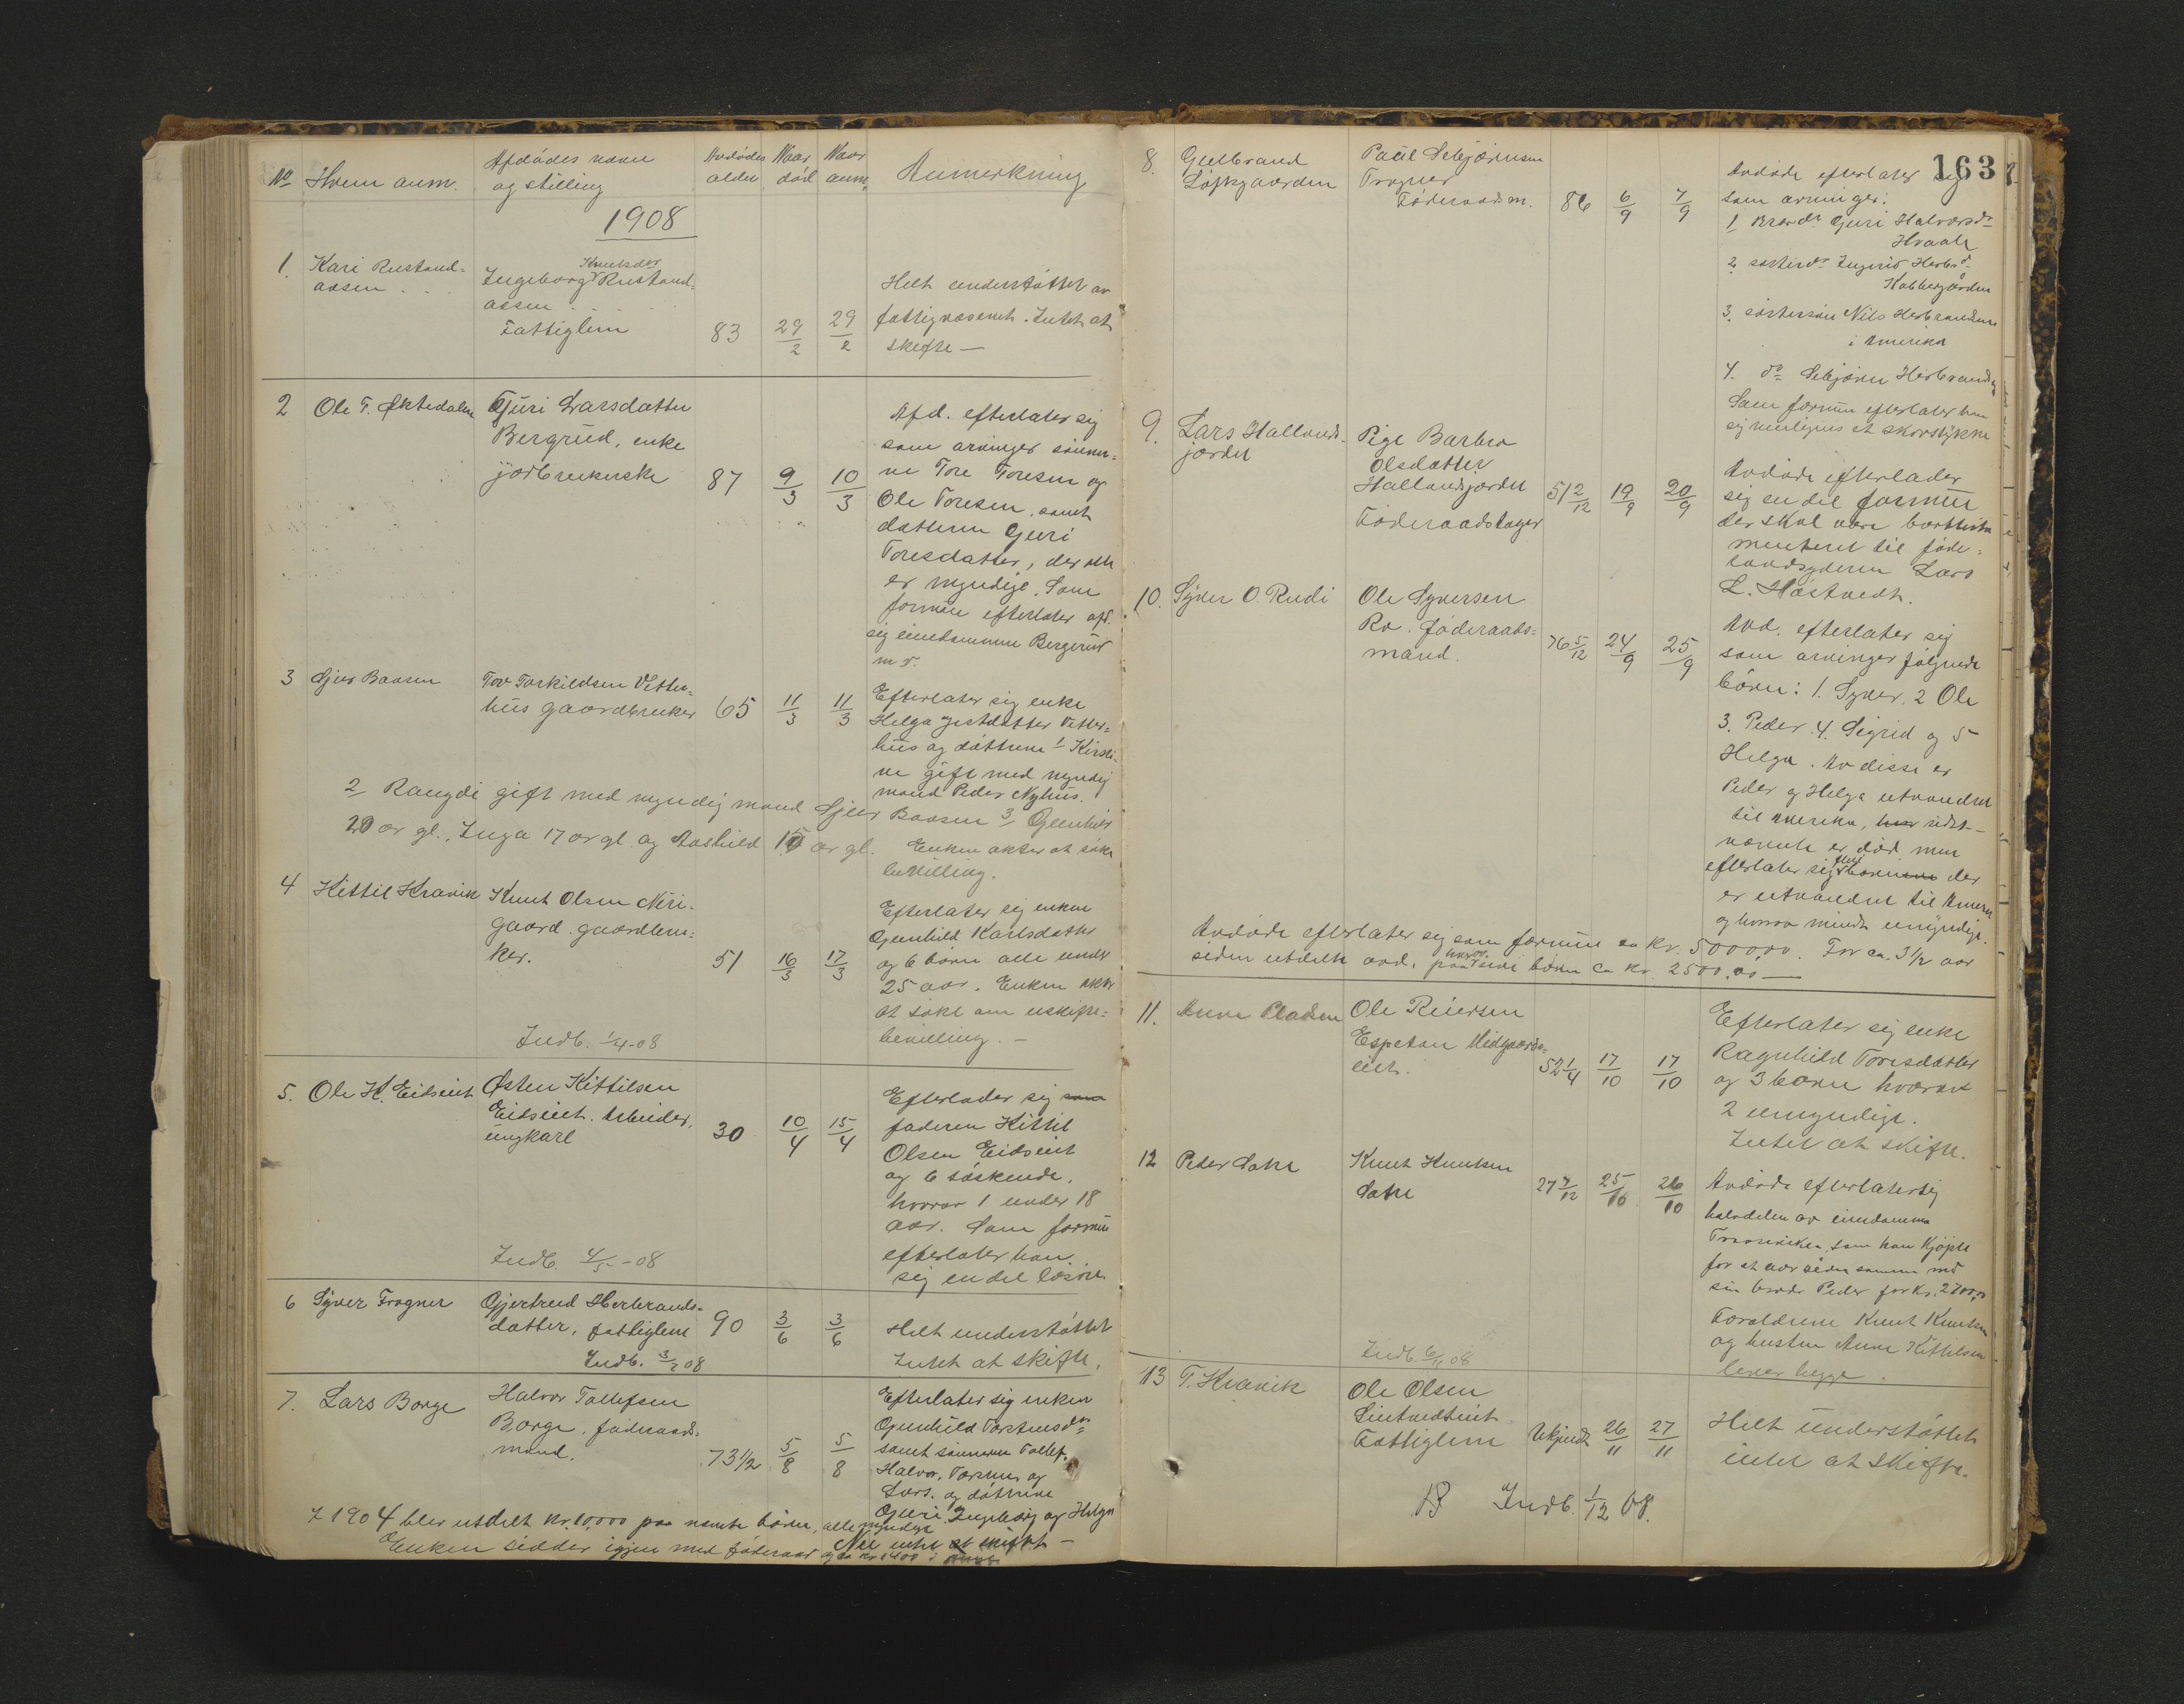 No Hvem anm. Afdødes navn og stilling Avdødes alder Naar død Naar anm. Anmerkning
1908
1. Kari Rustand=
aasen . . .
Knutsdtr
Ingeborg Rustand=
aasen . . .
Fattiglem 83 29/2 29/2
Helt understøttet av
fattigvæsenet. Intet at
skifte —
2 Ole T. Øktedalen
Guri Larsdatter
Bergrud, enke
jordbrukerske 87 9/3 10/3
Afd. efterlater sig
som arvinger sønner=
ne Tore Toresen og
Ole Toresen, samt
datteren Guri
Toresdatter, der alle
er myndige. Som
formue efterlater afd.
sig eiendommen Bergerud
m v.
3 Gjus Baasen
Tov Torkildsen Vetter=
hus gaardbruker 65 11/3 11/3
Efterlater sig enke
Helga Jestdatter Vetter=
hus og døttrene 1/ Kirsti=
ne gift med myndig
mand Peder Nyhus.
2/ Rangdi gift med myndig mand Gjus Baasen 3/ Gunhild
20 ar gl., Inga 17 ar gl. og Aashild 15 ar gl. Enken akter at søke
bevilling.
4 Kittil Kravik
Knut Olsen Nøri=
gaard. gaardbru=
ker. 51 16/3 17/3
Efterlater sig enken
Gunhild Karlsdatter
og 6 børn alle under
25 aar. Enken akter
at søke om uskifte=
bevilling. —
Indb. 1/4-08
5. Ole K. Eidsiet
Østen Kittilsen
Eidsiet. Arbeider,
ungkarl 30 10/4 15/4
Efterlader sig som
faderen Kittil
Olsen Eidsiet
og 6 søskende,
hvorav 1 under 18
aar. Som formue
efterlater han
sig en del løsøre.
Indb. 4/5-08
6 Syver Frogner
Gjertrud Herbrands=
datter, fattiglem 90 3/6 3/6
Helt understøttet
Intet at skifte.
Indb. 3/7 08
7. Lars Borge
Halvor Tollefsen
Borge. føderaads=
mand. 73 1/2 5/8 5/8
Efterlater sig enken
Gunhild Torstensdtr
samt sønnerne Tollef,
Halvor, Torsten og
Lars. og døttrene
Guri Ingeborg og Helga
I 1904 blev utdelt kr. 10,000 paa nævnte børn, alle myndige
Nu intet at skifte —
Enken sidder igjen med føderaad og ca kr 1400 i penge
163
8. Gulbrand
Løfsgaarden
Paul Sebjørnsen
Frogner
Føderaadsm. 86 6/9 7/9
Avdøde efterlater sig
som arvinger:
1, Brordr Guri Halvorsdr
Hvaale
2, søsterdr Ingrid Herbrd
Kobbergården
3, søstersøn Nils Herbrandsen
i Amerika
4. do Sebjørn Herbrands
Som formue efterlater han
sig muligens et skovstykke
9. Lars Hallands=
jordet
Pige Barbro
Olsdatter
Hallandsjordet
Føderaadstager 51 2/12 19/9 20/9
Avdøde efterlader
sig en del formue
der skal være borttesta
menteret til føde=
raadsyderen Lars
L. Høstvedt.
10. Syver O. Rudi
Ole Syversen
Ro. føderaads=
mand. 76 5/12 24/9 25/9
Avd. efterlater sig
som arvinger følgende
børn: 1. Syver. 2 Ole
3. Peder. 4. Sigrid og 5
Helga. Av disse er
Peder og Helga utvandret
til Amerika, hvor sidst—
nævnte er død men
efterlater sig flere børn der
er utvandret til Amerika
og hvorav mindst umyndige.
Avdøde efterlater sig som formue ca kr. 5000,00. For ca. 3 1/2 aar
siden utdelte avd. paa hver av sine børn ca kr. 2500,00 —
11. Anne Pladsen
Ole Reiersen
Espeton Midgaards=
eiet. 52 1/4 17/10 17/10
Efterlater sig enke
Ragnhild Toresdatter
og 3 børn hvorav
2 umyndige.
Intet at skifte.
12 Peder Sate
Knut Knutsen
Sate 27 7/12 25/10 26/10
Avdøde efterlater sig
halvdelen av eiendommen
som han kjøpte
for et aar siden sammen med
sin broder Peder for kr. 2700,00
Forældrene Knut Knutsen
og hustru Anne Kittilsen
lever begge.
Indb. 6/11 08
13 T. Kravik
Ole Olsen
Sintvedteiet
Fattiglem Ukjendt 26/11 27/11
Helt understøttet
intet at skifte.
13 Indb. 1/12 08.